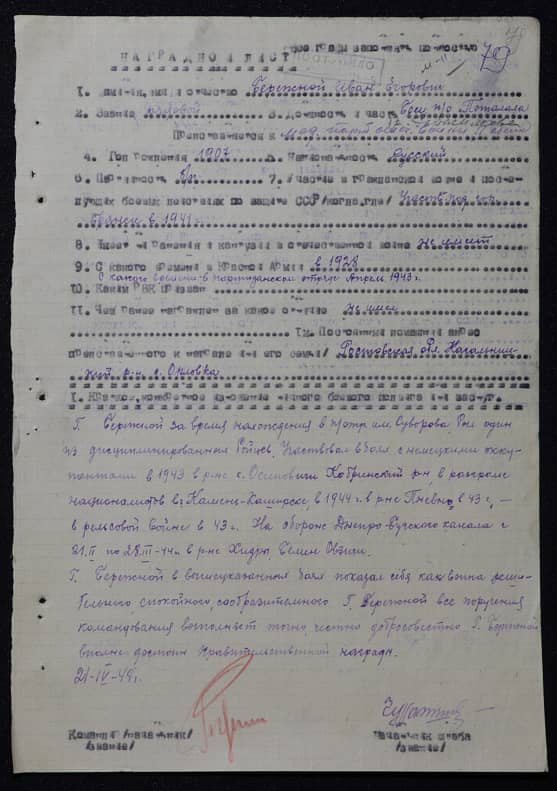 78
НАГРАДНОЙ ЛИСТ
1. Фамилия, имя и отчество Бережной Иван
2. Звание рядовой 3. Должность и часть Боец п/о
Представляется к
4. Год рождения 1907 5. Национальность Русский
6. Партийность бп 7. Участие в гражданской войне и после-
дующих боевых действиях по защите СССР /когда, где/
Брянск в 1941 г.
8. Имеет ли ранения и контузии в отечественной войне не имеет
9. С какого времени в Красной Армии в 1928
С какого времени в партизанском отряде Апрель 1943 г.
10. Каким РВК призван
11. Чем ранее награжден за какое отличие не имел
12. Постоянный домашний адрес
представляемого к награде и его семьи/ Ростовская обл.
р-н с. Орловка
1. Краткое, конкретное изложение личного боевого подвига или заслуг.
Т. Бережной за время нахождения в п/отр им. Суворова был один
из дисциплинированных бойцов. Участвовал в боях с немецкими окку-
пантами в 1943 в р-не с. Кобринский р-н, в разгроме
националистов в г. Камень-Каширске, в 1944 г. в р-не в 43 г.,
в рельсовой войне в 43 г. На обороне Днепро-Бугского канала с
21.II по 28.III-44 г. в р-не
Т. Бережной в вышеуказанных боях показал себя как воина реши-
тельного, спокойного, сообразительного. Т. Бережной все поручения
командования выполняет точно, честно добросовестно. Т. Бережной
вполне достоин Правительственной награды.
21-IV-44 г.
Командир /начальник/
/звание/
Начальник штаба
/звание/